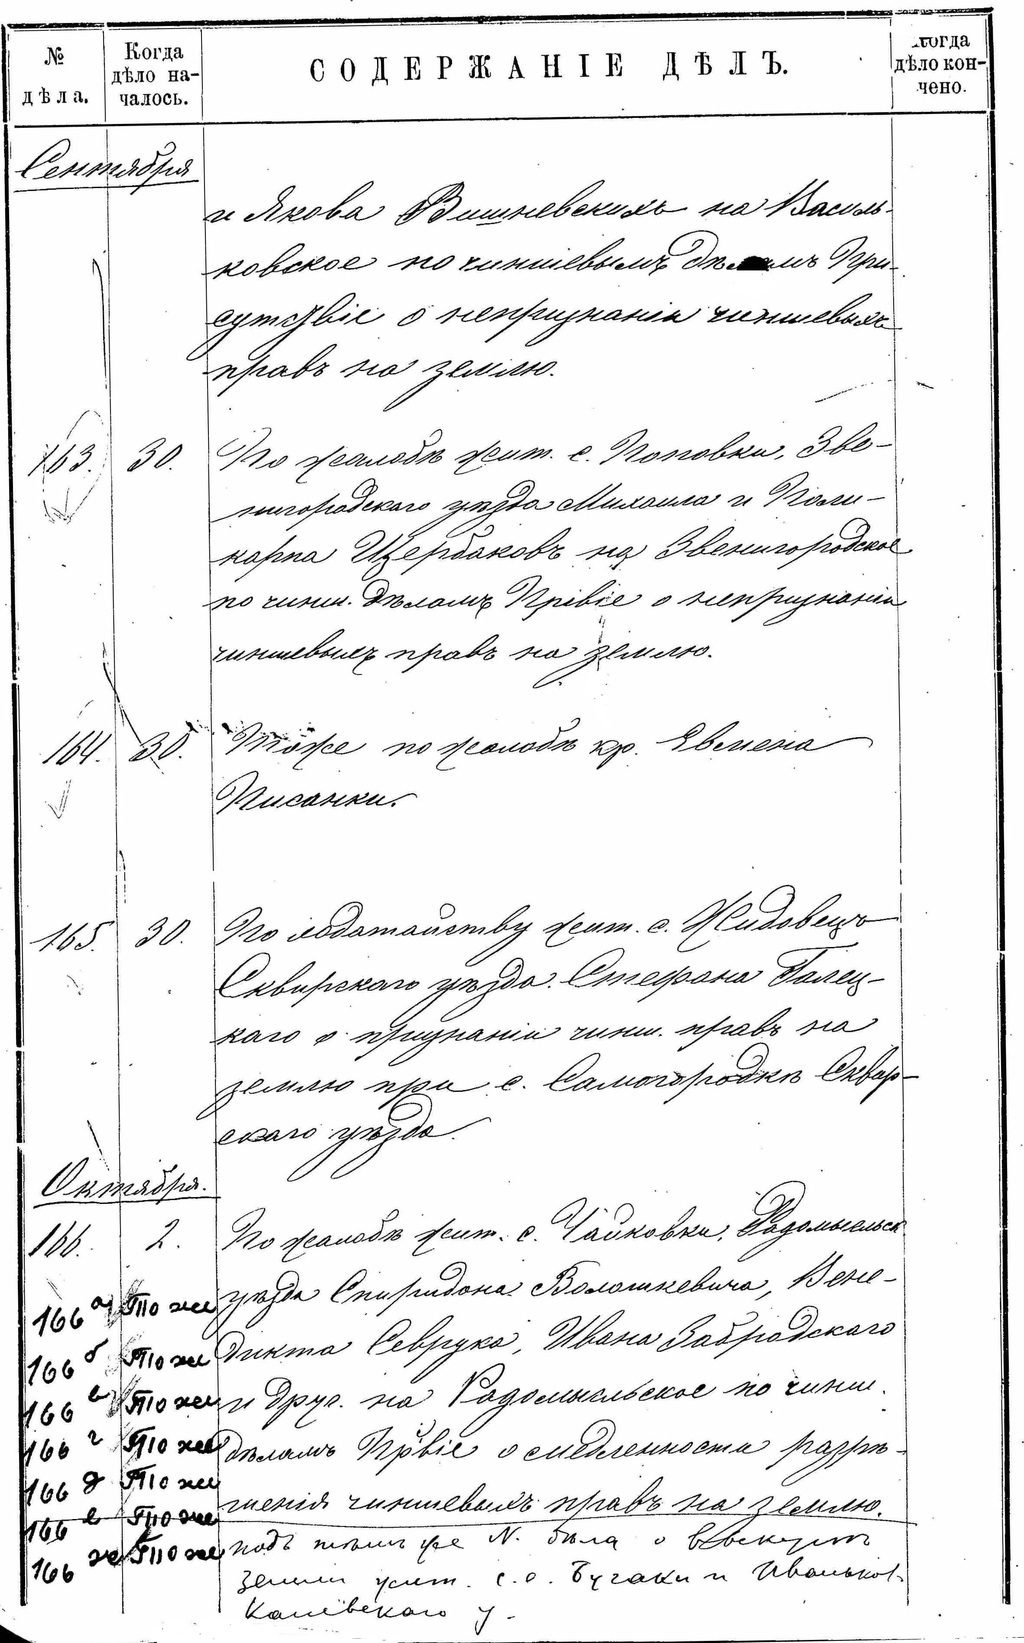 № дѣла.
Когда дѣло началось.
СОДЕРЖАНІЕ ДѢЛЪ.
Когда дѣло кончено.
Сентября
и Якова Вишневскихъ на Василь-
ковское по чиншевымъ дѣламъ При-
сутствіе о непризнаніи чиншевыхъ
правъ на землю.
163. 30. По жалобѣ жит. с. Поповки, Зве-
нигородскаго уѣзда Михаила и Поли-
карпа Щербаковъ на Звенигородское
по чинш. дѣламъ Прівіе о непризнаніи
чиншевыхъ правъ на землю.
164. 30. Тоже по жалобѣ кр. Евмена
Писанки.
165. 30. По ходатайству жит. с. Жидовецъ
Сквирскаго уѣзда Стефана Галец-
каго о признаніи чинш. правъ на
землю при с. Самогородкѣ Сквир-
скаго уѣзда.
Октября.
166. 2. По жалобѣ жит. с. Чайковки, Радомысльск.
уѣзда Спиридона Волошкевича, Вене-
166 а Тоже
дикта Севрука, Ивана Забродскаго
166 б Тоже
и друг. на Радомысльское по чинш.
166 в Тоже
дѣламъ Прівіе о медленности разрѣ-
166 г Тоже
166 д Тоже
шенія чиншевыхъ правъ на землю.
166 е Тоже
подъ тѣмъ же N. дѣла о выкупѣ
166 ж Тоже
земли жит. с.с. Бугаки и Иваньков
Каневскаго у.